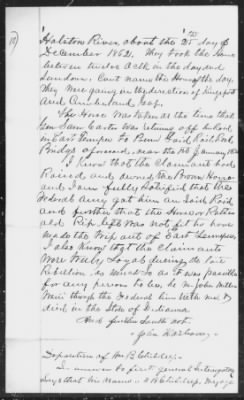 Holston River, about the 25th day of
December 1862. They took the same
between twelve Oclk in the day and
Sundown. Cant name the Hour of the day,
They were going in the direction of
and Cumberland Gap.
The Horse was taken at the time that
Gen Sam Carter was returning off his Raid
in East Tennessee to Burn said Railroad
Bridge aforesaid,
I Know that the Claimant had
Raised and owned the Brown Horse
and I am fully Satisfied that the
Federal Army got him on Said Raid
and further that the Horse
left was not fit to have
made the trip out of East Tennessee
I also Know that the Claimants
were truly Loyal during the late
Rebellion, as much so as it was possible
for any person to be, he Mr John Miller
went through the Federal lines with me &
died in the State of Indiana
And further Saith not.
John
Deposition of Wm B Childress.
I answer to first general Interrogatory
Says that his Name is W B Childress, My age